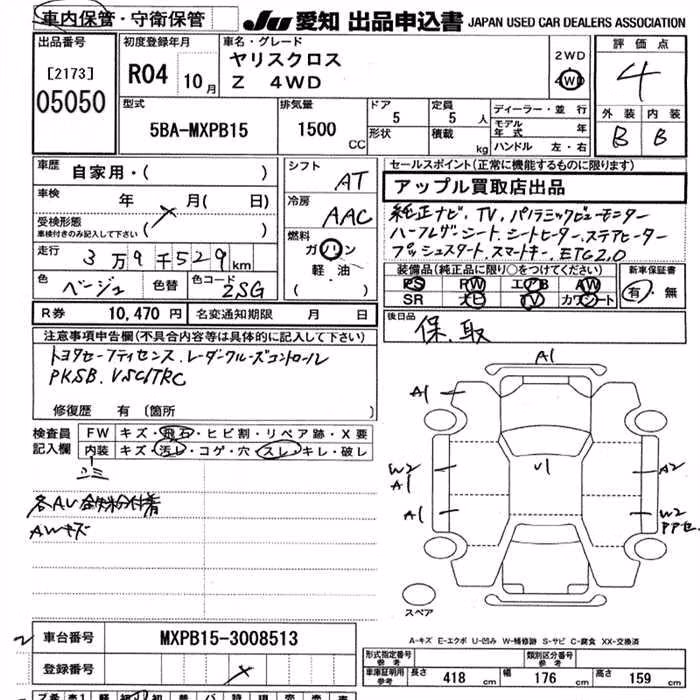 車内保管・守衛保管
JU 愛知 出品申込書 JAPAN USED CAR DEALERS ASSOCIATION
出品番号
[2173]
05050
初度登録年月
R04 10月
車名・グレード
ヤリスクロス
Z 4WD
2WD
4WD
評価点
4
外装 内装
B B
型式
5BA-MXPB15
排気量
1500 CC
ドア
5
形状
定員
5 人
積載
kg
ディーラー・並行
モデル年式 年
ハンドル 左・右
車歴 自家用・( )
車検 年 月( 日)
受検形態
車検付きのみ記入して下さい ( )
走行 3万9千529km
色 ベージュ 色替 色コード 2SG
シフト AT
冷房 AAC
燃料
ガソリン
軽油
( )
セールスポイント(正常に機能するものに限ります)
アップル買取店出品
純正ナビ、TV、パノラミックビューモニター
ハーフレザーシート、シートヒーター、ステアヒーター
プッシュスタート、スマートキー、ETC2.0
装備品(純正品に限り○をつけてください)
PS PW エアB AW
SR ナビ TV カワシート
新車保証書
有・無
R券 10,470 円 名変通知期限 月 日
後日品 保、取
注意事項申告欄(不具合内容等は具体的に記入して下さい)
トヨタセーフティセンス、レーダークルーズコントロール
PKSB、VSC/TRC
修復歴 有〔箇所 〕
検査員記入欄
FW キズ・飛石・ヒビ割・リペア跡・X要
内装 キズ・汚レ・コゲ・穴・スレ・キレ・破レ
AWキズ
A1
A1
W2
A1
A1
U1
A2
W2
スペア
A-キズ E-エクボ U-凹み W-補修跡 S-サビ C-腐食 XX-交換済
車台番号 MXPB15-3008513
登録番号
形式指定番号 参考
類別区分番号 参考
車庫証明用 参考 長さ 418 cm 幅 176 cm 高さ 159 cm